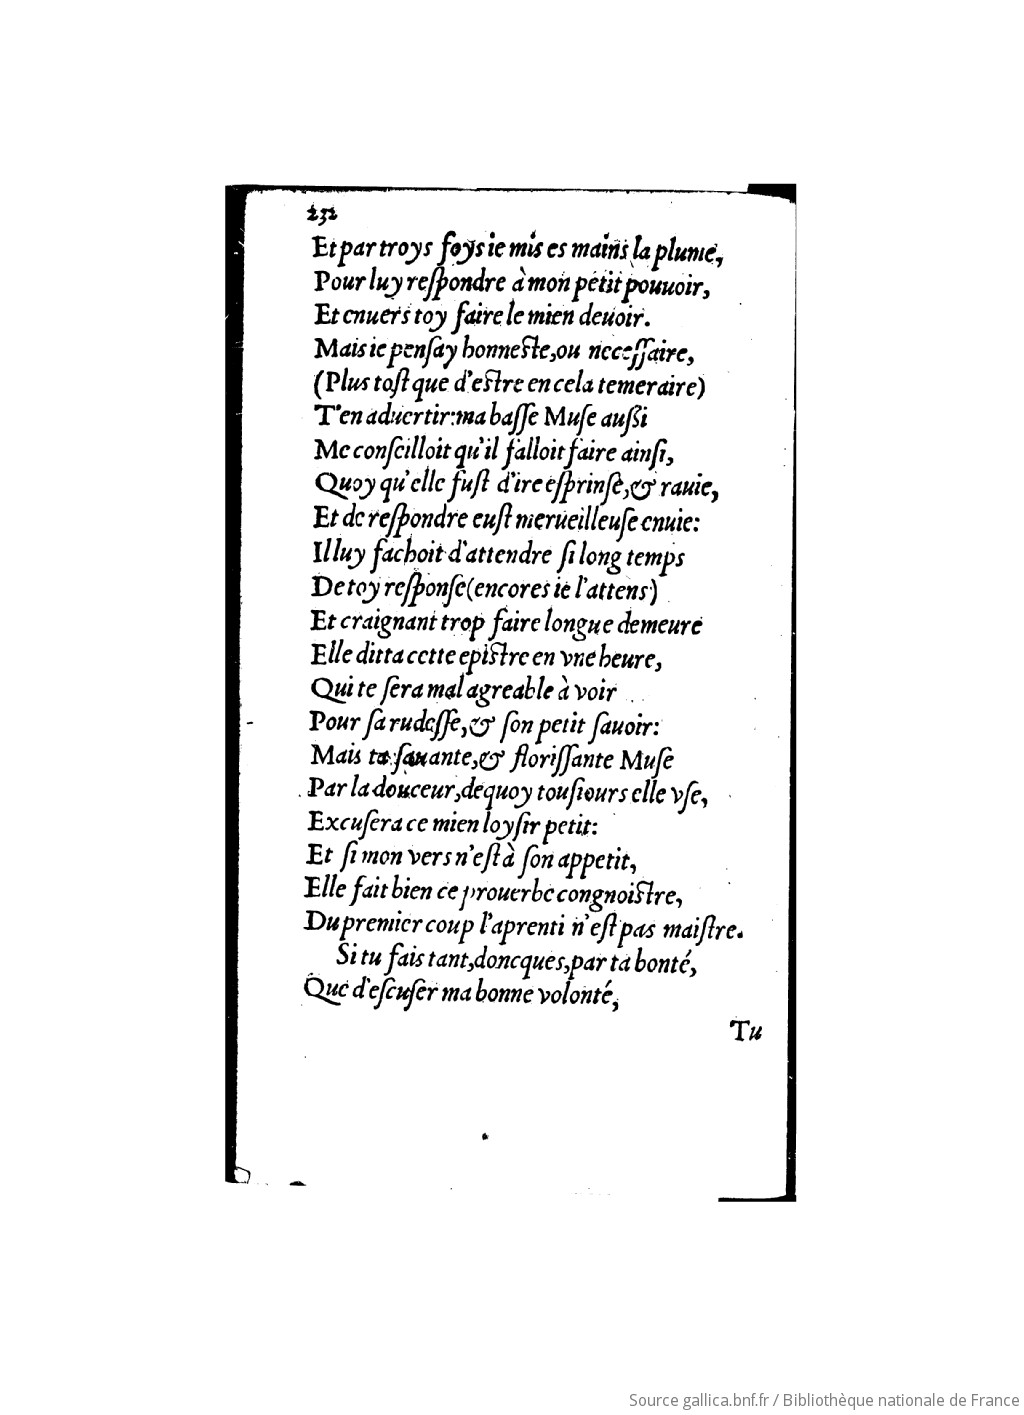 232
Et par troys foys ie mis es mains la plume,
Pour luy reſpondre à mon petit pouuoir,
Et enuers toy faire le mien deuoir.
Mais ie penſay honneſte, ou neceſſaire,
(Plus toſt que d'eſtre en cela temeraire)
T'en aduertir: ma baſſe Muſe außi
Me conſeilloit qu'il falloit faire ainſi,
Quoy qu'elle fuſt d'ire eſprinſe, & rauie,
Et de reſpondre euſt merueilleuſe enuie:
Il luy fachoit d'attendre ſi long temps
De toy reſponſe (encores ie l'attens)
Et craignant trop faire longue demeure
Elle ditta cette epiſtre en vne heure,
Qui te ſera mal agreable à voir
Pour ſa rudeſſe, & ſon petit ſauoir:
Mais ta ſauante, & floriſſante Muſe
Par la douceur, dequoy touſiours elle vſe,
Excuſera ce mien loyſir petit:
Et ſi mon vers n'eſt à ſon appetit,
Elle fait bien ce prouerbe congnoiſtre,
Du premier coup l'aprenti n'eſt pas maiſtre.
Si tu fais tant, doncques, par ta bonté,
Que d'eſcuſer ma bonne volonté,
Tu
Source gallica.bnf.fr / Bibliothèque nationale de France